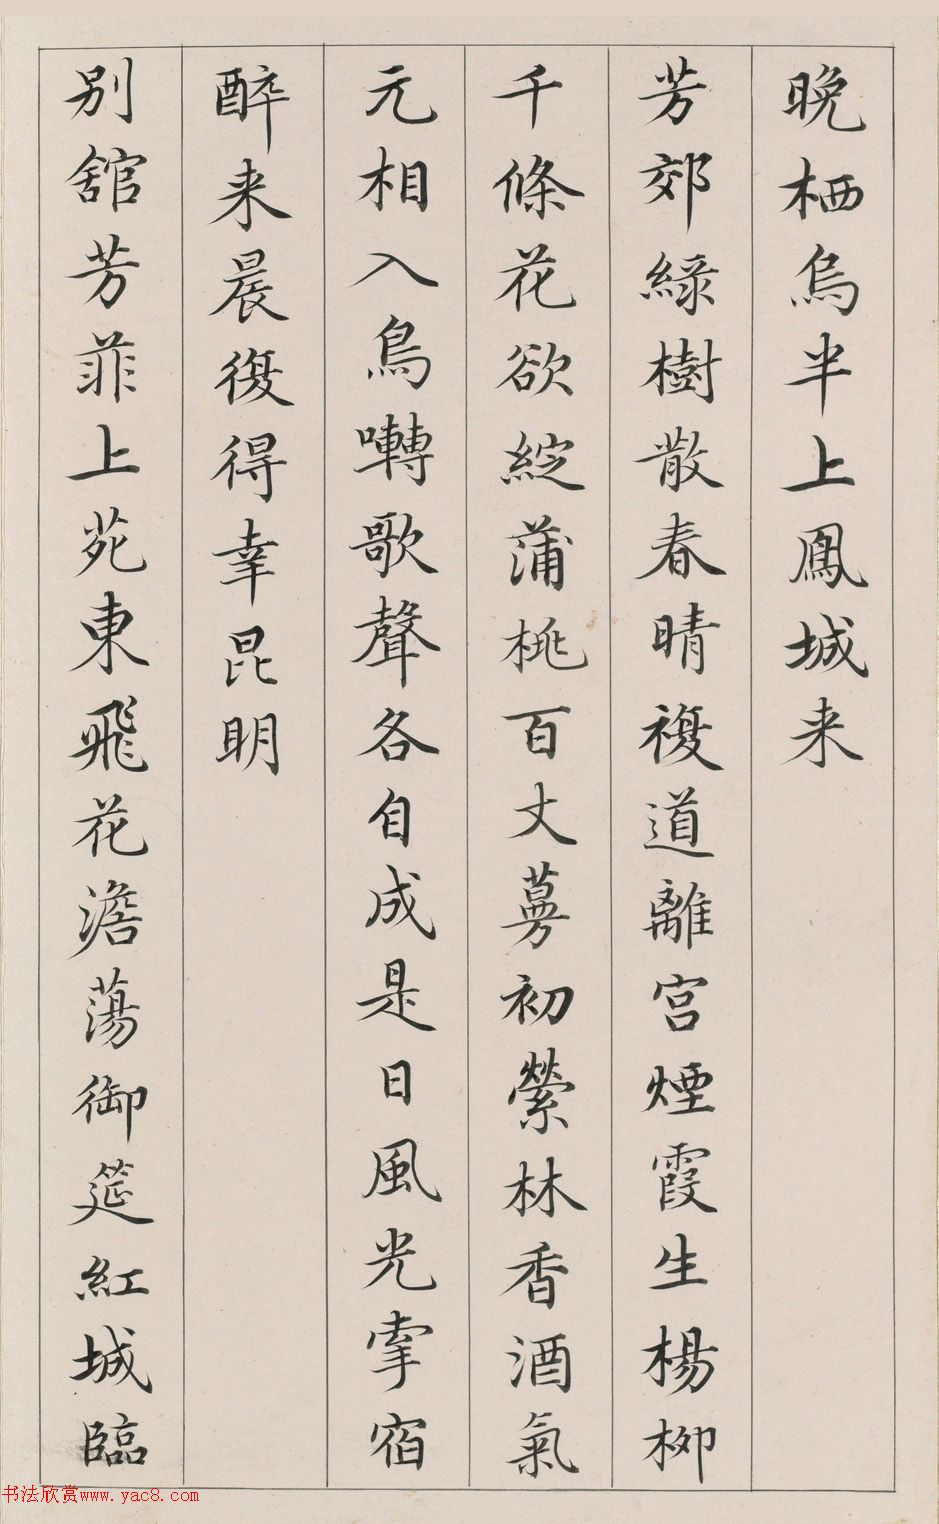 晚栖烏半上鳳城来
芳郊綠樹散春晴複道離宮煙霞生楊柳
千條花欲綻蒲桃百丈蔓初縈林香酒氣
元相入鳥囀歌聲各自成是日風光寧宿
醉来晨復得幸昆明
別舘芳菲上苑東飛花澹蕩御筵紅城臨
书法欣赏www.yac8.com